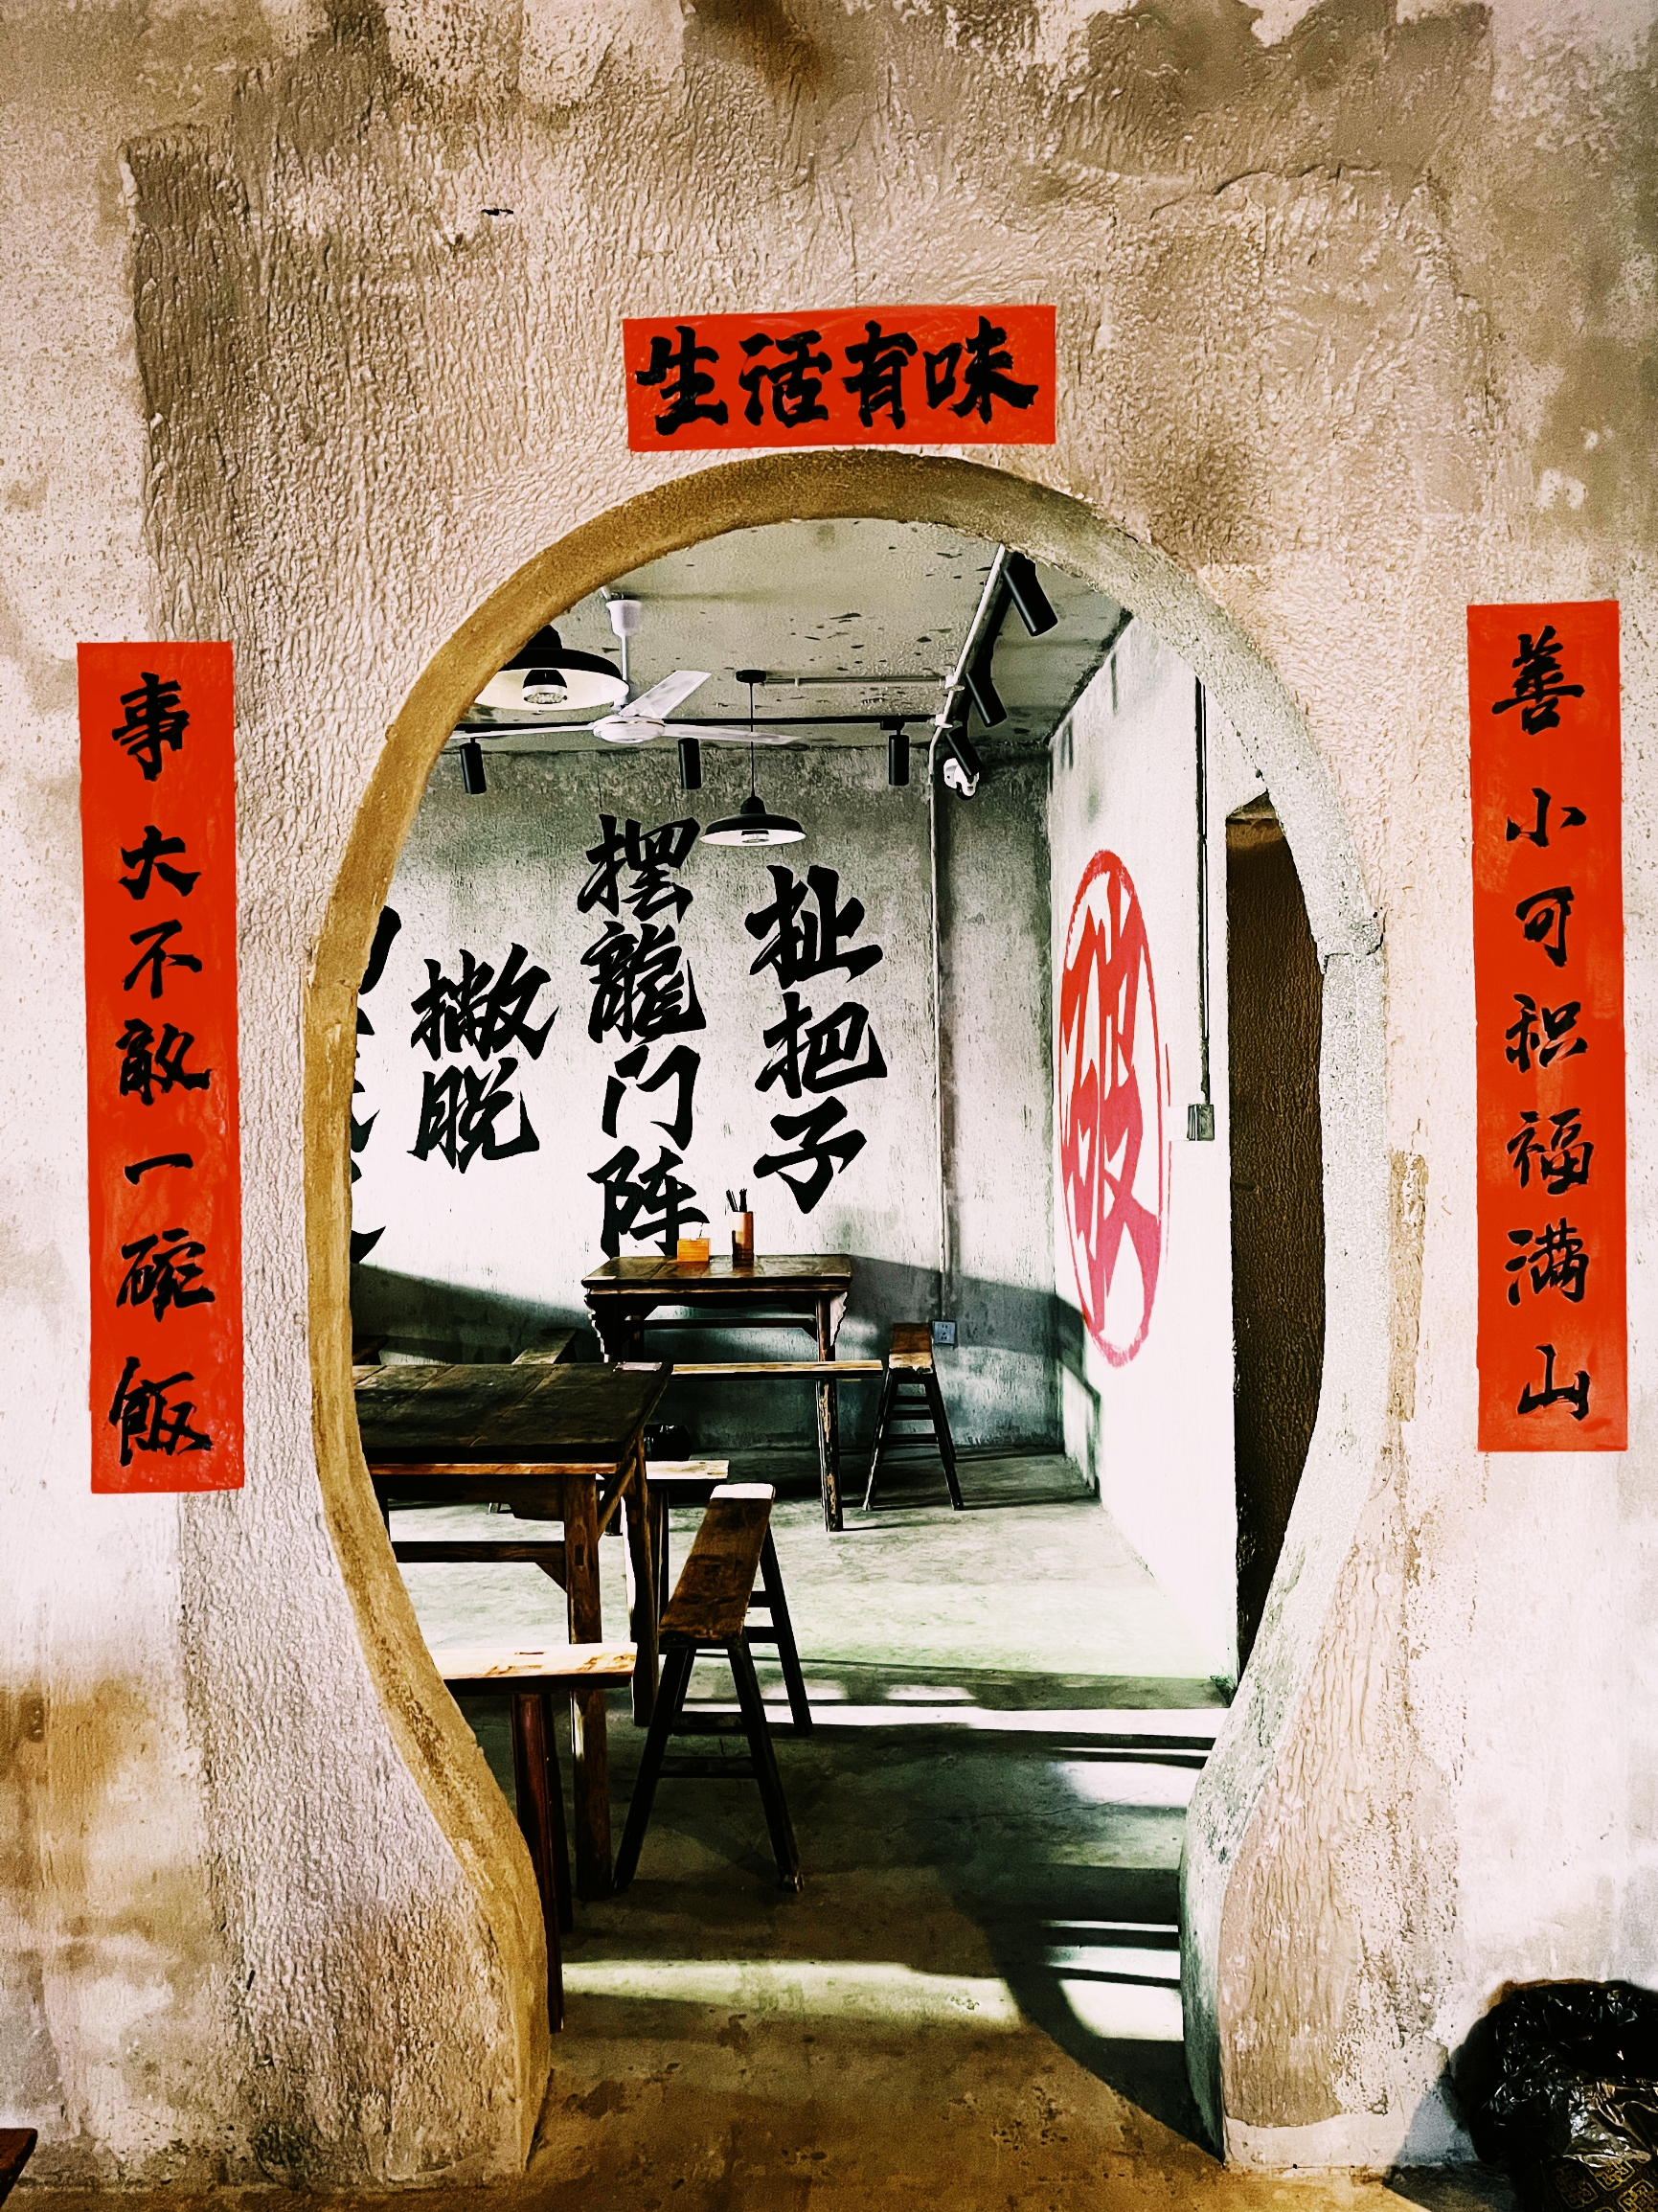 生活有味
善小可积福满山
事大不敢一碗飯
扯把子
摆龍门阵
撇脱